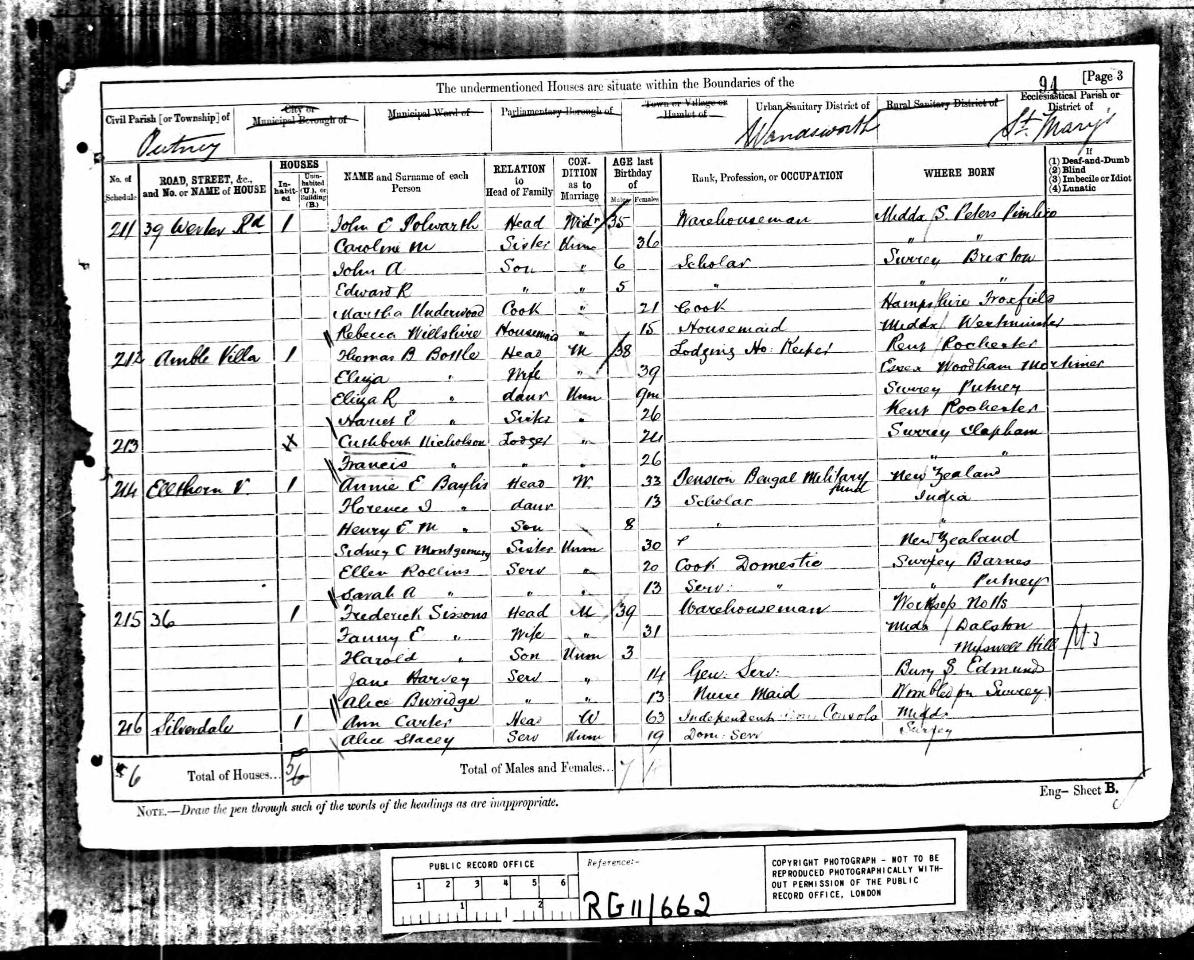 The undermentioned Houses are situate within the Boundaries of the
94 [Page 3
Civil Parish [or Township] of Putney
City or Municipal Borough of
Municipal Ward of
Parliamentary Borough of
Town or Village or Hamlet of
Urban Sanitary District of Wandsworth
Rural Sanitary District of
Ecclesiastical Parish or District of St. Mary's
No. of Schedule
ROAD, STREET, &c., and No. or NAME of HOUSE
HOUSES
In-habit-ed
Unin-habited (U.), or Building (B.)
NAME and Surname of each Person
RELATION to Head of Family
CON-DITION as to Marriage
AGE last Birthday of
Males Females
Rank, Profession, or OCCUPATION
WHERE BORN
If
(1) Deaf-and-Dumb
(2) Blind
(3) Imbecile or Idiot
(4) Lunatic
211 39 Rd 1 John E Polwarth Head Widr 35 Warehouseman Middx S. Peters Pimlico
Caroline M Sister Unm 36 " "
John A Son " 6 Scholar Surrey Brixton
Edward R " " 5 " " "
Martha Underwood Cook " 21 Cook Hampshire Froxfield
Rebecca Willshire Housemaid " 15 Housemaid Middx Westminster
212 Amble Villa 1 Thomas B Bottle Head M 38 Lodging Ho: Keeper Kent Rochester
Eliza " Wife " 39 Essex Woodham Mortimer
Eliza R " daur Unm 9m Surrey Putney
Harriet E " Sister " 26 Kent Rochester
213 Cuthbert Nicholson Lodger " 24 Surrey Clapham
Francis " " " 26 " "
214 Ellthorn V. 1 Annie E Baylis Head W. 33 Pension Bengal Military Fund New Zealand
Florence I " daur 13 Scholar India
Henry E M " Son 8 " "
Sidney C Montgomery Sister Unm 30 New Zealand
Ellen Rollins Serv " 20 Cook Domestic Surrey Barnes
Sarah A " " " 13 Serv: " " Putney
215 36 1 Frederick Sissons Head M 39 Warehouseman Worksop Notts
Fanny E " Wife " 31 Midx Dalston
Harold " Son Unm 3 Muswell Hill
Jane Harvey Serv " 14 Gen: Serv: Bury S. Edmunds
Alice Burridge " " 13 Nurse Maid Wimbledon Surrey
216 Silverdale 1 Ann Carter Head W 63 Independent Consols Middx
Alice Stacey Serv Unm 19 Dom: Serv Surrey
6 Total of Houses... 5/6 Total of Males and Females... 7
NOTE.—Draw the pen through such of the words of the headings as are inappropriate.
Eng— Sheet B.
PUBLIC RECORD OFFICE
1 2 3 4 5 6
1 2
Reference:-
RG 11/662
COPYRIGHT PHOTOGRAPH - NOT TO BE
REPRODUCED PHOTOGRAPHICALLY WITH-
OUT PERMISSION OF THE PUBLIC
RECORD OFFICE, LONDON